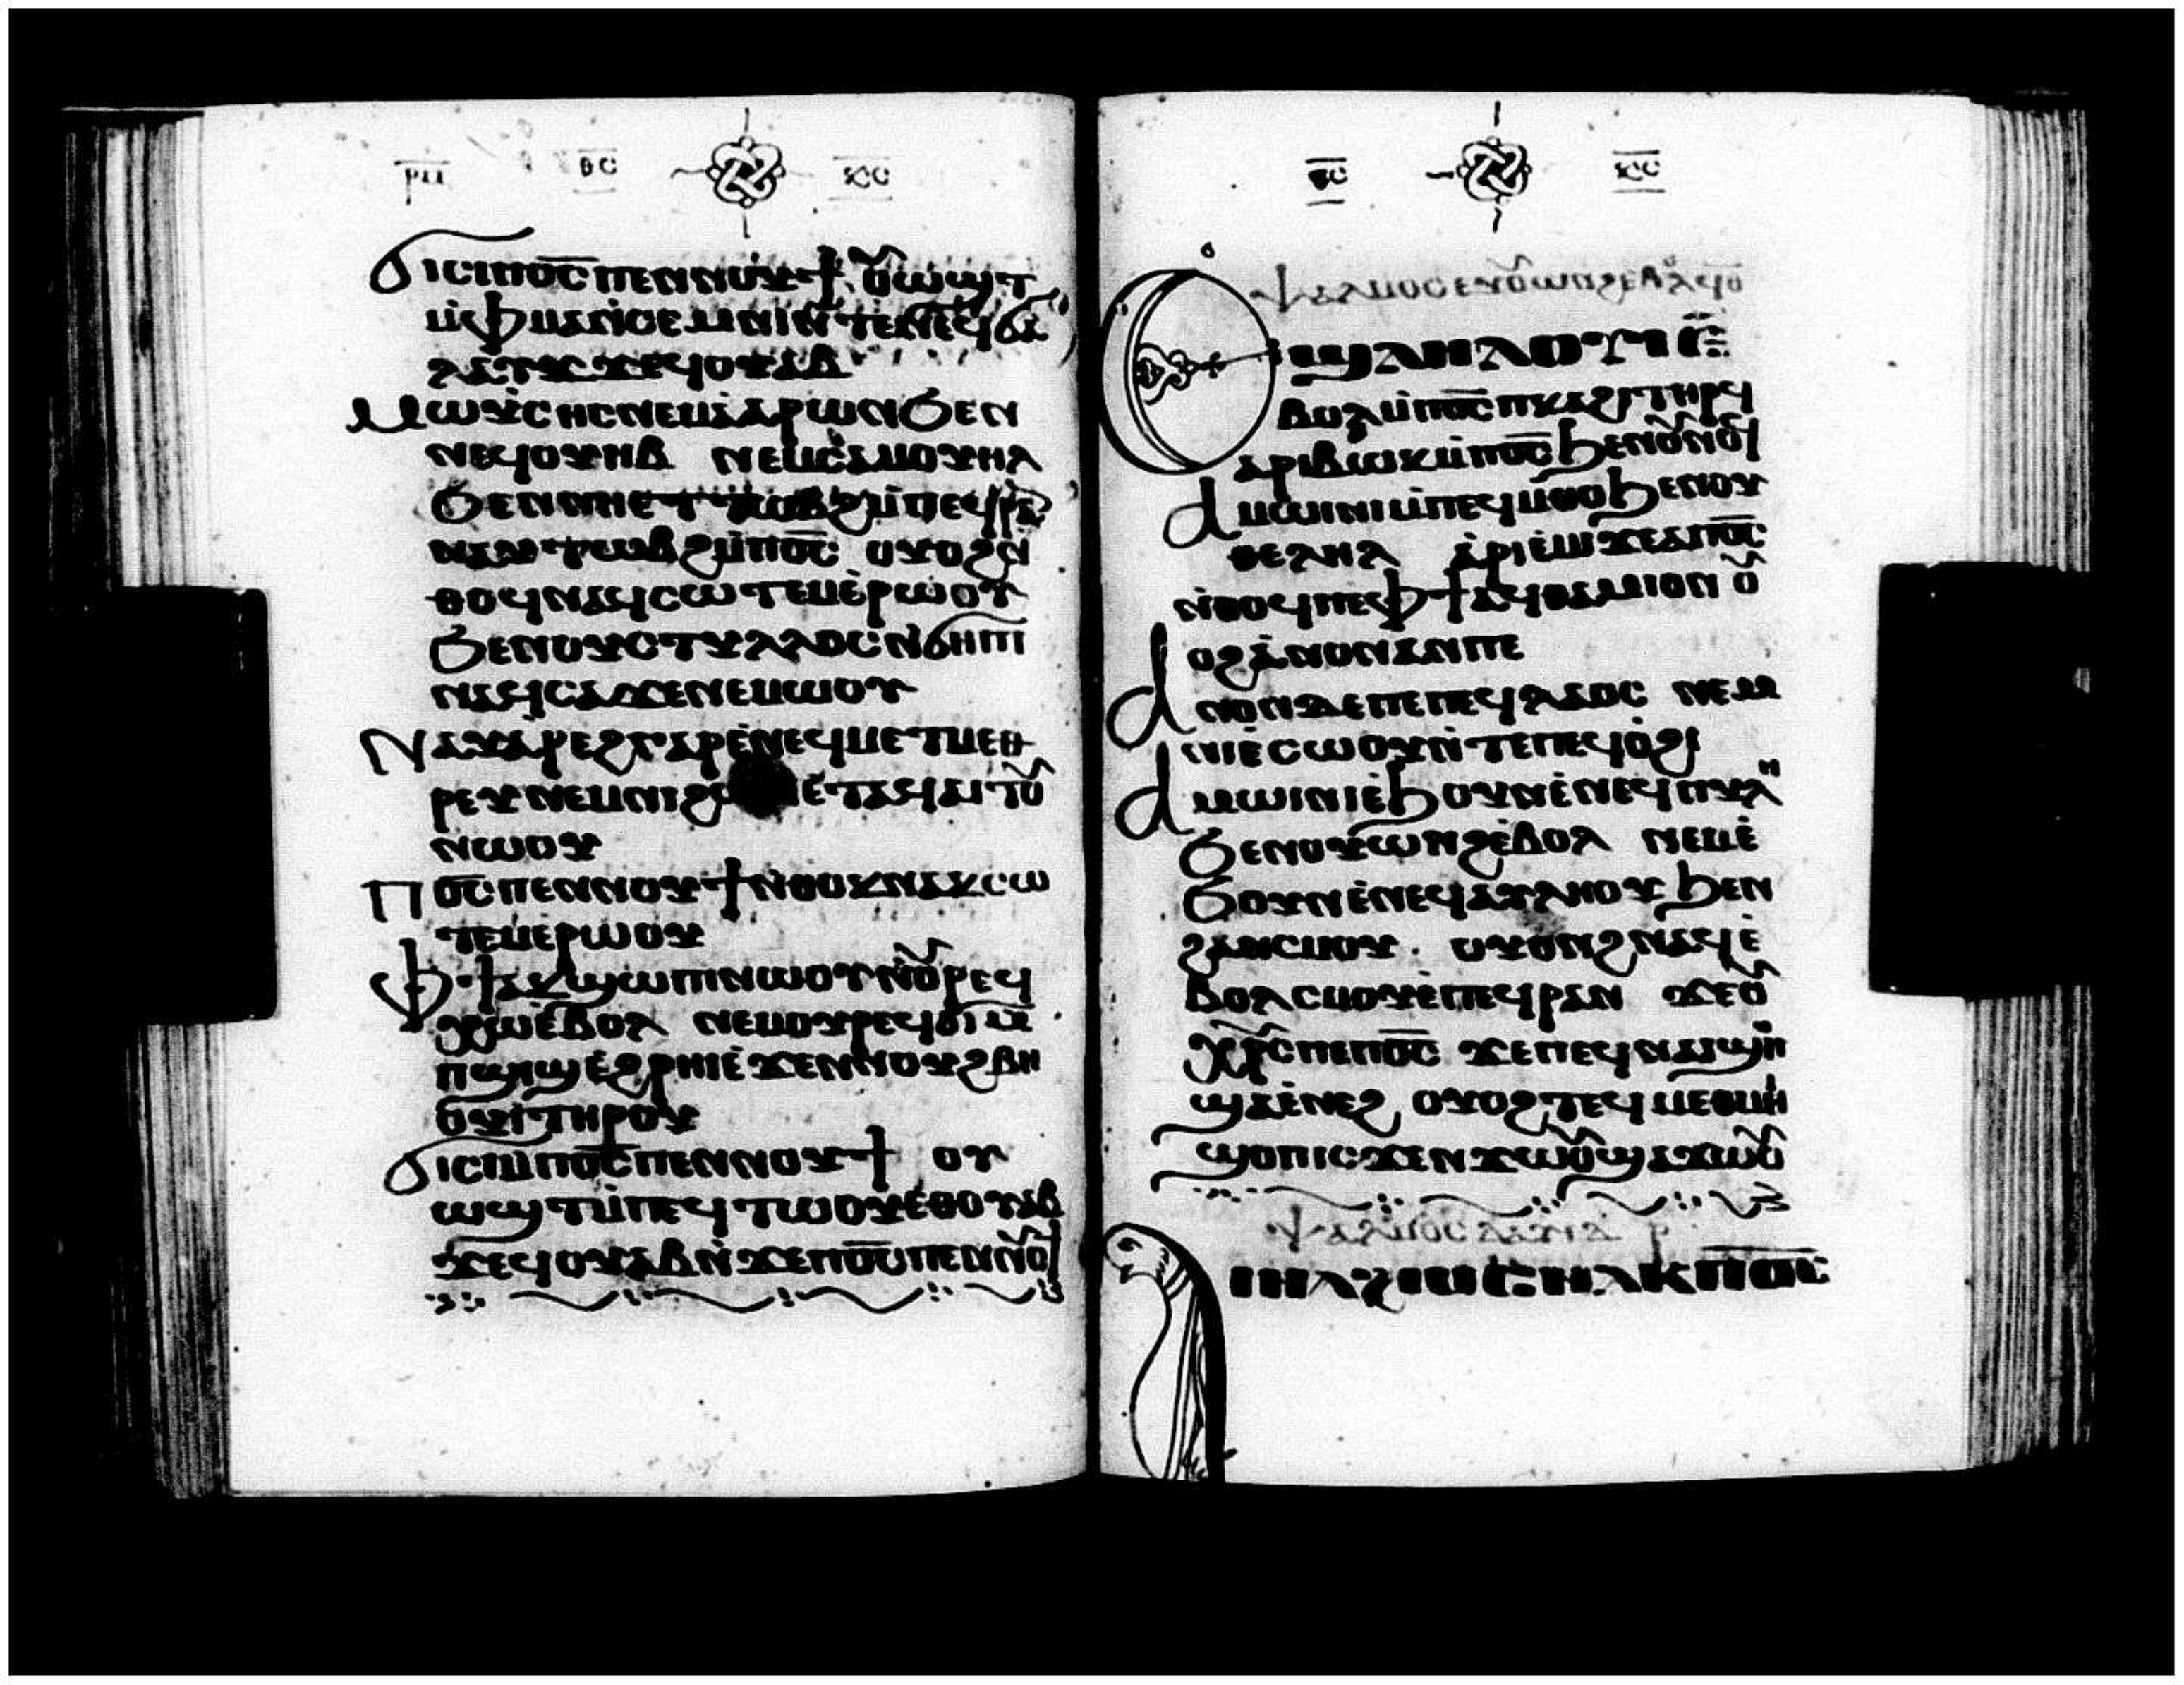 ⲣⲡ ⲑⲥ ⲭⲥ
Ϭⲓⲥⲓ ⲙⲡⲟ̅ⲥ̅ ⲡⲉⲛⲛⲟⲩϯ ⲟⲩⲱϣⲧ
ⲙ̀ⲫⲙⲁⲛ̀ⲥⲉⲙⲛⲓ ⲛ̀ⲧⲉⲛⲉϥϭⲁ
ⲗⲁⲩϫ ϫⲉϥⲟⲩⲁⲃ
Ⲙⲱⲩⲥⲏⲥ ⲛⲉⲙ ⲁ̀ⲁⲣⲱⲛ ϧⲉⲛ
ⲛⲉϥⲟⲩⲏⲃ ⲛⲉⲙ ⲥⲁⲙⲟⲩⲏⲗ
ϧⲉⲛ ⲛⲏⲉⲧⲧⲱⲃϩ ⲙ̀ⲡⲉϥⲣⲁ
ⲛⲁⲩⲧⲱⲃϩ ⲙ̀ⲡⲟ̅ⲥ̅ ⲟⲩⲟϩ ⲛ̀
ⲑⲟϥ ⲛⲁϥⲥⲱⲧⲉⲙ ⲉ̀ⲣⲱⲟⲩ
ϧⲉⲛ ⲟⲩⲥⲧⲩⲗⲗⲟⲥ ⲛ̀ϭⲏⲡⲓ
ⲛⲁϥⲥⲁϫⲉ ⲛⲉⲙⲱⲟⲩ
Ⲛⲁⲩⲁ̀ⲣⲉϩ ⲅⲁⲣ ⲉ̀ⲛⲉϥⲙⲉⲧⲙⲉⲑ
ⲣⲉⲩ ⲛⲉⲙ ⲛⲓ ⲉ̀ⲧⲁϥⲁⲓⲧⲟⲩ
ⲛⲱⲟⲩ
Ⲡⲟ̅ⲥ̅ ⲡⲉⲛⲛⲟⲩϯ ⲛ̀ⲑⲟⲕ ⲛⲁⲕⲥⲱ
ⲧⲉⲙ ⲉ̀ⲣⲱⲟⲩ
Ⲫϯ ⲁⲕϣⲱⲡⲓ ⲛⲱⲟⲩ ⲛ̀ⲟⲩⲣⲉϥ
ⲭⲱ ⲉ̀ⲃⲟⲗ ⲛⲉⲙ ⲟⲩⲣⲉϥϭⲓ ⲙ̀
ⲡϣⲓϣ ⲉ̀ϩⲣⲏⲓ ⲉ̀ϫⲉⲛ ⲛⲟⲩϩⲃⲏ
ⲟⲩⲓ̀ ⲧⲏⲣⲟⲩ
Ϭⲓⲥⲓ ⲙ̀ⲡⲟ̅ⲥ̅ ⲡⲉⲛⲛⲟⲩϯ ⲟⲩ
ⲱϣⲧ ⲙ̀ⲡⲉϥⲧⲱⲟⲩ ⲉ̀ⲑⲟⲩⲁⲃ
ϫⲉϥⲟⲩⲁⲃ ⲛ̀ϫⲉ ⲡⲟ̅ⲥ̅ ⲡⲉⲛⲛⲟⲩϯ
ⲑⲥ ⲭⲥ
ⲯⲁⲗⲙⲟⲥ ⲉⲩⲟⲩⲱⲛϩ ⲉⲃⲟⲗ
Ⲉϣⲗⲏⲗⲟⲩⲓ ⲉ̀
ⲃⲟⲗ ⲙ̀ⲡⲟ̅ⲥ̅ ⲡⲕⲁϩⲓ ⲧⲏⲣϥ
ⲁⲣⲓⲃⲱⲕ ⲙ̀ⲡⲟ̅ⲥ̅ ϧⲉⲛ ⲟⲩⲟⲩⲛⲟϥ
Ⲁⲙⲱⲓⲛⲓ ⲙ̀ⲡⲉϥⲙ̀ⲑⲟ ϧⲉⲛ ⲟⲩ
ⲑⲉⲗⲏⲗ ⲁ̀ⲣⲓⲉ̀ⲙⲓ ϫⲉ ⲁ̀ⲡⲟ̅ⲥ̅
ⲛ̀ⲑⲟϥ ⲡⲉ ⲫϯ ⲁϥⲑⲁⲙⲓⲟⲛ ⲟⲩ
ⲟϩ ⲁ̀ⲛⲟⲛ ⲁⲛ ⲡⲉ
Ⲁⲛⲟⲛ ⲇⲉ ⲡⲉ ⲡⲉϥⲗⲁⲟⲥ ⲛⲉⲙ
ⲛⲓⲉ̀ⲥⲱⲟⲩ ⲛ̀ⲧⲉ ⲡⲉϥⲟ̀ϩⲓ
Ⲁⲙⲱⲓⲛⲓ ⲉ̀ϧⲟⲩⲛ ⲉ̀ⲛⲉϥⲡⲩⲗⲏ
ϧⲉⲛ ⲟⲩⲱⲛϩ ⲉ̀ⲃⲟⲗ ⲛⲉⲙ ⲉ̀
ϧⲟⲩⲛ ⲉ̀ⲛⲉϥⲁⲩⲗⲏⲟⲩ ϧⲉⲛ
ϩⲁⲛⲥⲙⲟⲩ ⲟⲩⲱⲛϩ ⲛⲁϥ ⲉ̀
ⲃⲟⲗ ⲥⲙⲟⲩ ⲉ̀ⲡⲉϥⲣⲁⲛ ϫⲉ ⲟⲩ
ⲭⲣⲥ ⲡⲉ ⲡⲟ̅ⲥ̅ ϫⲉ ⲡⲉϥⲛⲁⲓ ϣⲟⲡ
ϣⲁ ⲉ̀ⲛⲉϩ ⲟⲩⲟϩ ⲧⲉϥⲙⲉⲑⲙⲏⲓ
ϣⲟⲡ ⲓⲥϫⲉⲛ ϫⲱⲟⲩ ϣⲁ ϫⲱⲟⲩ
ⲯⲁⲗⲙⲟⲥ ⲇⲁⲩⲓⲇ ⲣ
ⲡⲟ̅ⲥ̅